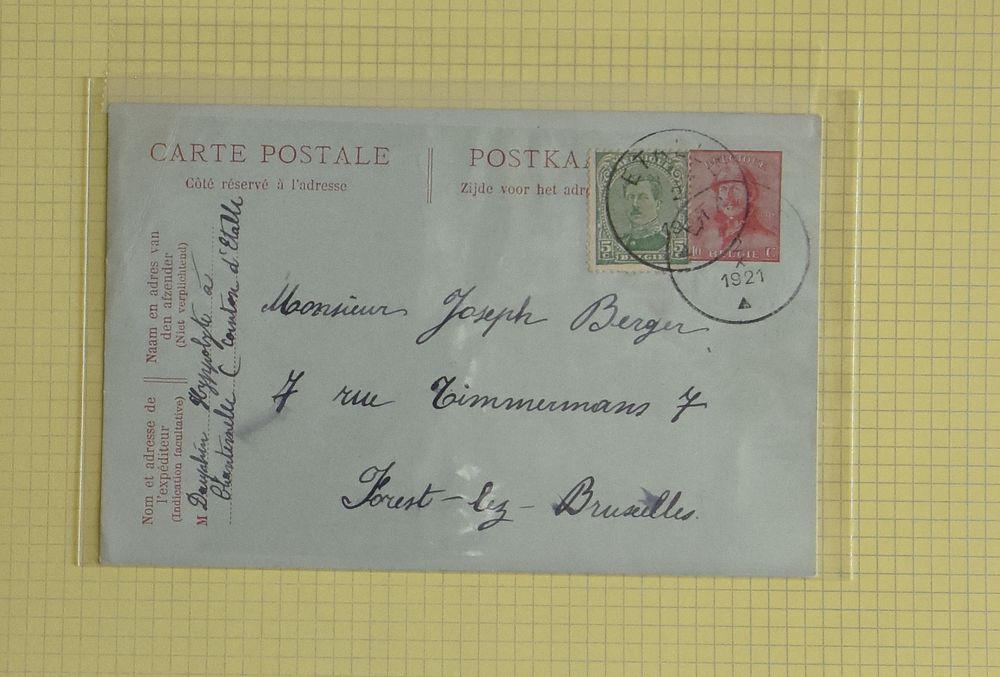 CARTE POSTALE
Côté réservé à l'adresse
POSTKA
Zijde voor het adr
5 5
BELGIE
BELGIQUE
10 BELGIE C
ET
1921
Naam en adres van
den afzender
(Niet verplichtend)
Nom et adresse de
l'expéditeur
(Indication facultative)
M Dauphin Hyppolyte à
Chantemelle C Canton d'Etalle
Monsieur Joseph Berger
7 rue Timmermans 7
Forest-lez-Bruxelles.